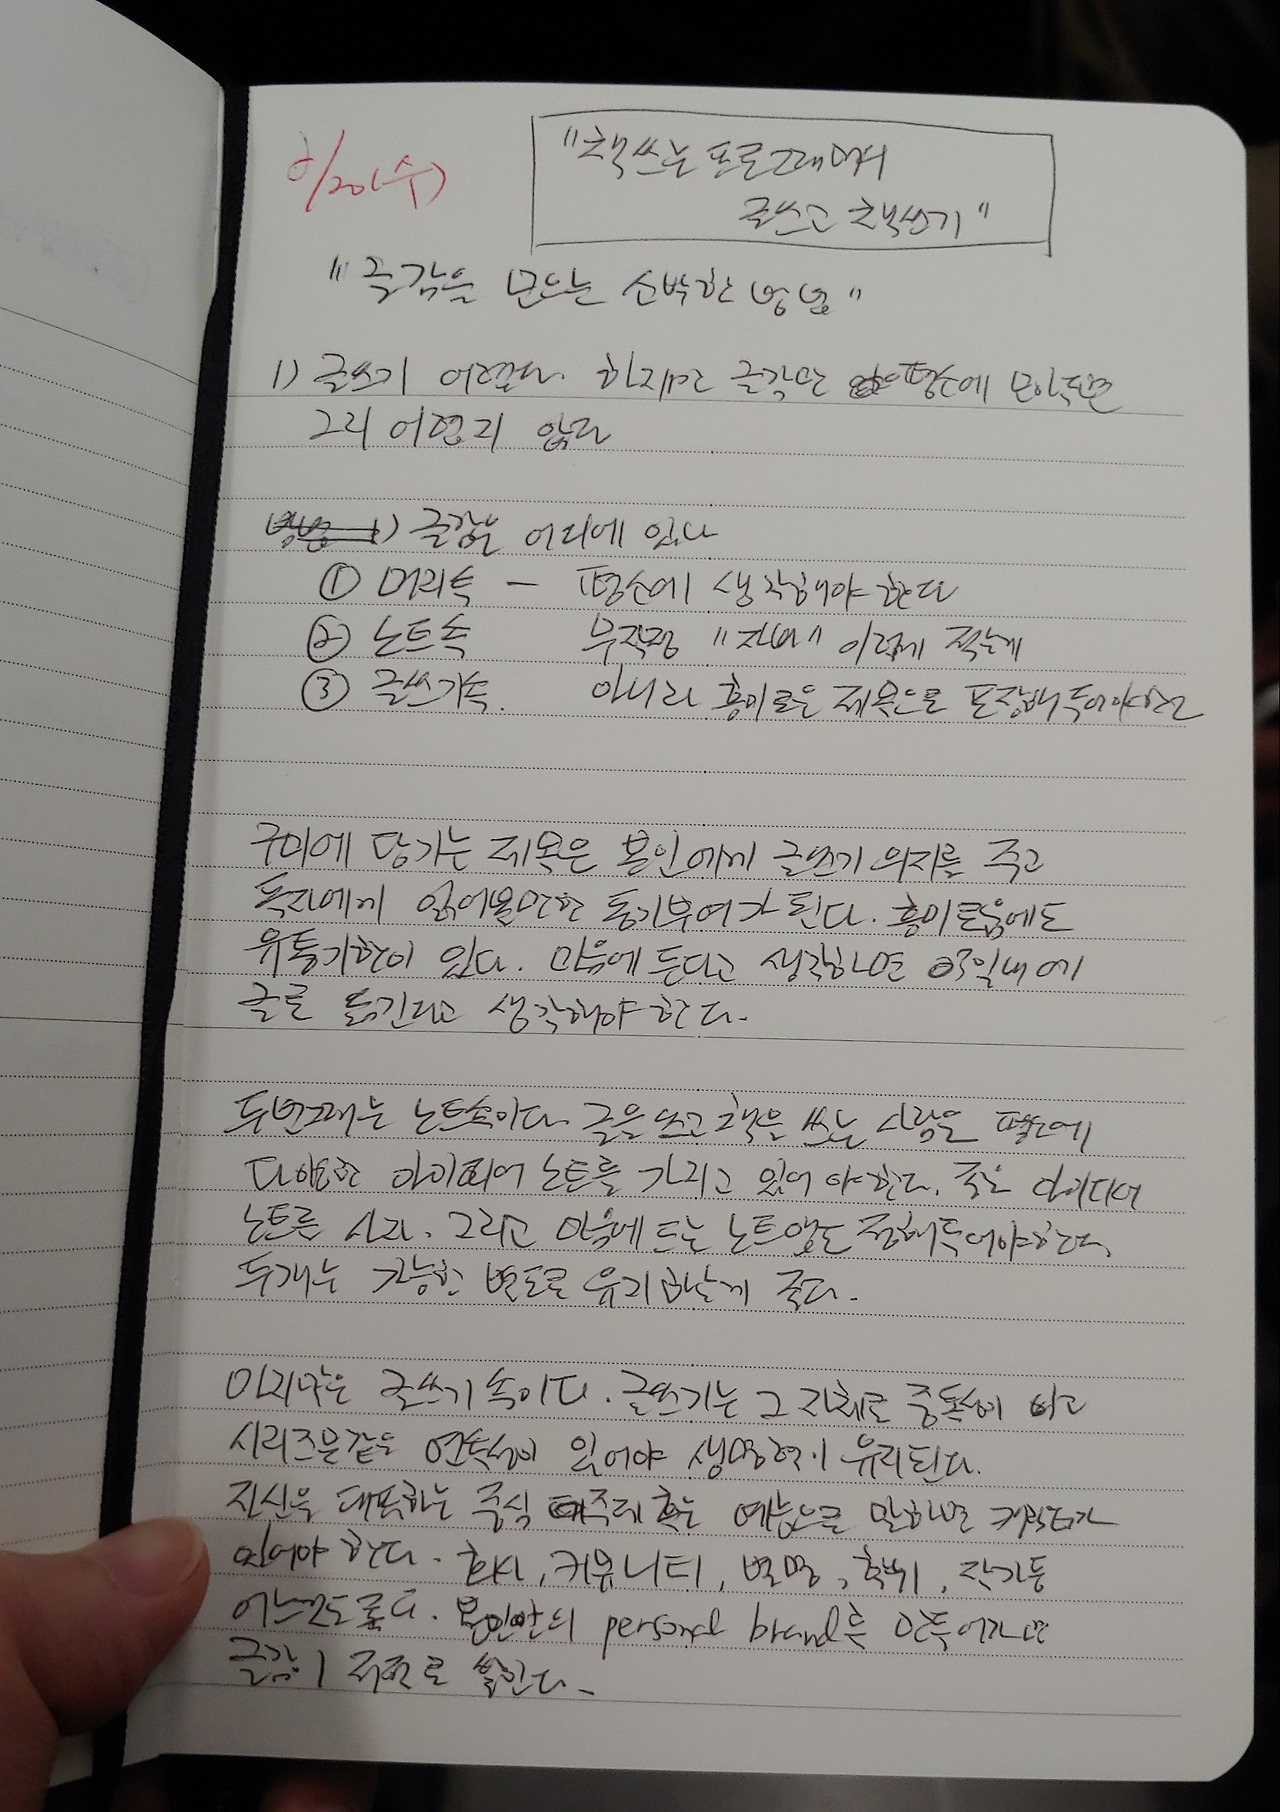 2/20(수)
"책쓰는 프로그래머의
글쓰고 책쓰기"
"글감을 모으는 소박한 방법"
1) 글쓰기 어렵다. 하지만 글감만 평소에 모아두면
그리 어렵지 않다
1) 글감은 어디에 있나
① 머리속 - 평소에 생각해야 한다
② 노트속 무작정 "자바" 이렇게 적는게
③ 글쓰기속. 아니라 흥미로운 제목으로 포장해두어야한다
구미에 당기는 제목은 본인에게 글쓰기 의지를 주고
독자에게 읽어볼만한 동기부여가 된다. 흥미로움에도
유통기한이 있다. 마음에 든다고 생각하면 3일내에
글로 옮긴다고 생각해야 한다.
두번째는 노트속이다. 글을 쓰고 책을 쓰는 사람은 평소에
다양한 아이디어 노트를 가지고 있어야 한다. 좋은 아이디어
노트를 사라. 그리고 마음에 드는 노트앱도 정해두어야한다.
두개는 가능한 별도로 유지하는게 좋다.
마지막은 글쓰기 속이다. 글쓰기는 그 자체로 중독성이 있고
시리즈물같은 연속성이 있어야 생명력이 유지된다.
자신을 대표하는 중심 주제 혹은 예능으로 말하면 캐릭터가
있어야 한다. 회사, 커뮤니티, 별명, 학위, 작가등
어느것도 좋다. 본인만의 personal brand를 만들어가면
글감이 저절로 쌓인다.